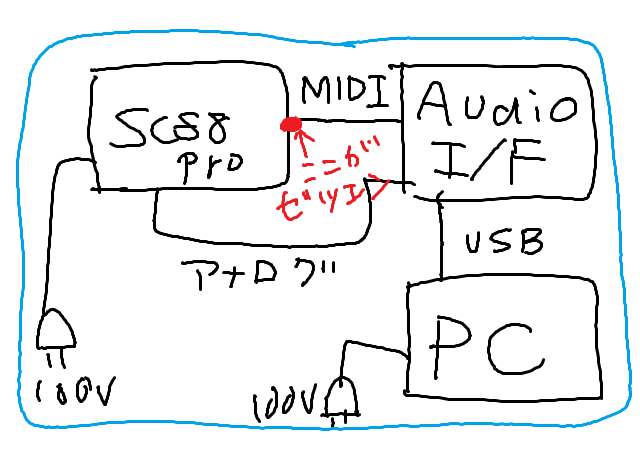 SC88
pro
MIDI
Audio
I/F
ここが
ゼツエン
アナログ
USB
PC
100V
100V